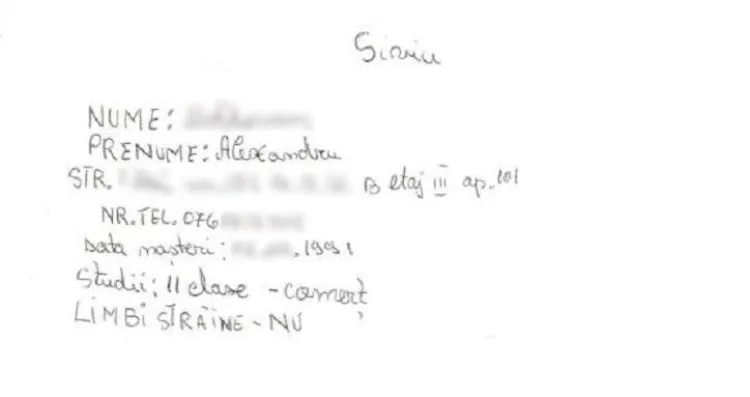 Sirviu
NUME:
PRENUME: Alexandru
STR. B etaj III ap. 101
NR. TEL. 076
Data nașteri: .1991
Studii: 11 clase - comerț
LIMBI STRĂINE - NU